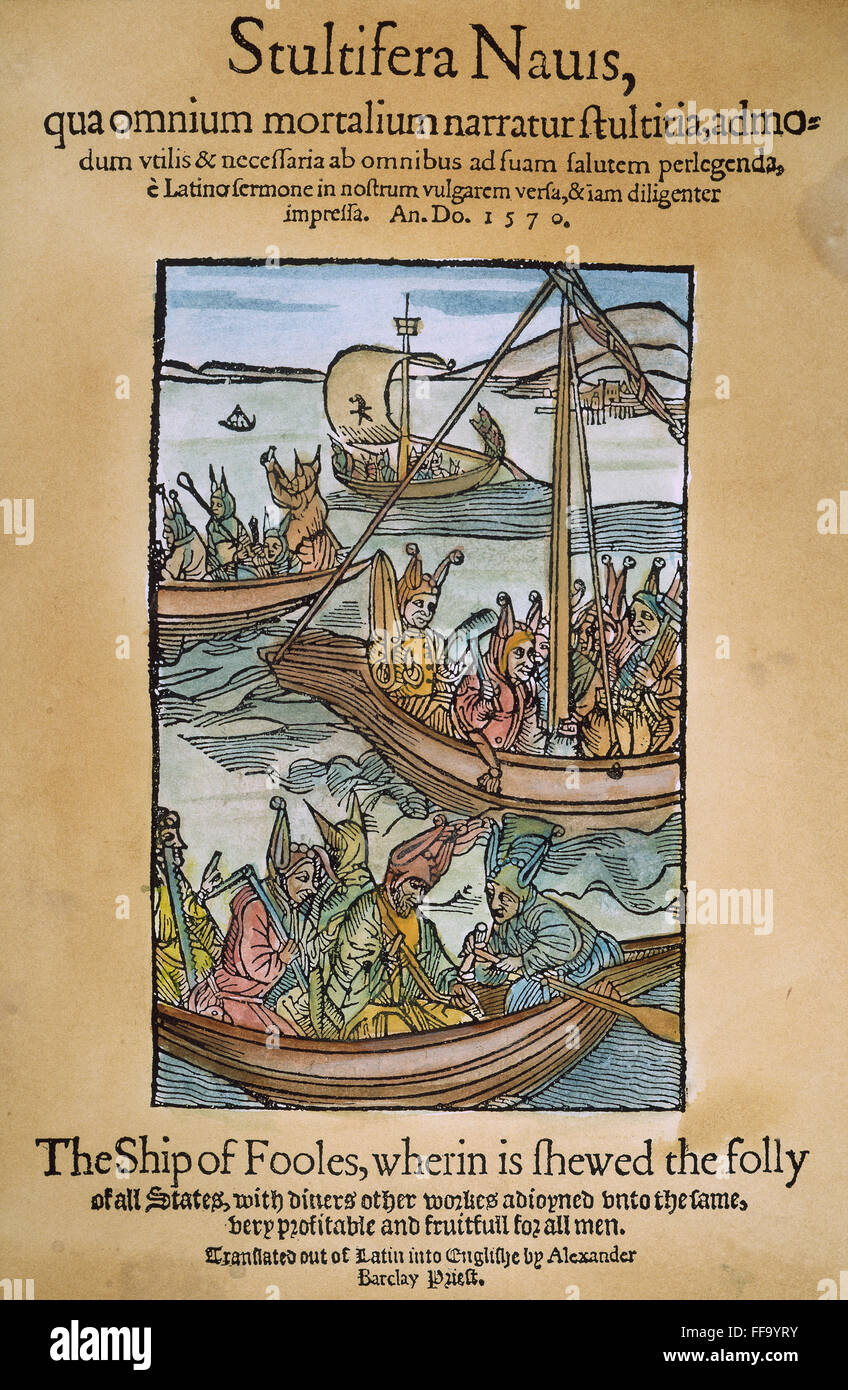 Stultifera Nauis,
qua omnium mortalium narratur ſtultitia, admo=
dum vtilis & neceſſaria ab omnibus ad ſuam ſalutem perlegenda,
è Latino ſermone in noſtrum vulgarem verſa, & iam diligenter
impreſſa. An. Do. 1570.
The Ship of Fooles, wherin is ſhewed the folly
of all States, with diuers other workes adioyned vnto the ſame,
very profitable and fruitfull for all men.
Tranſlated out of Latin into Engliſhe by Alexander
Barclay Prieſt.
alamy
Image ID: FF9YRY
www.alamy.com